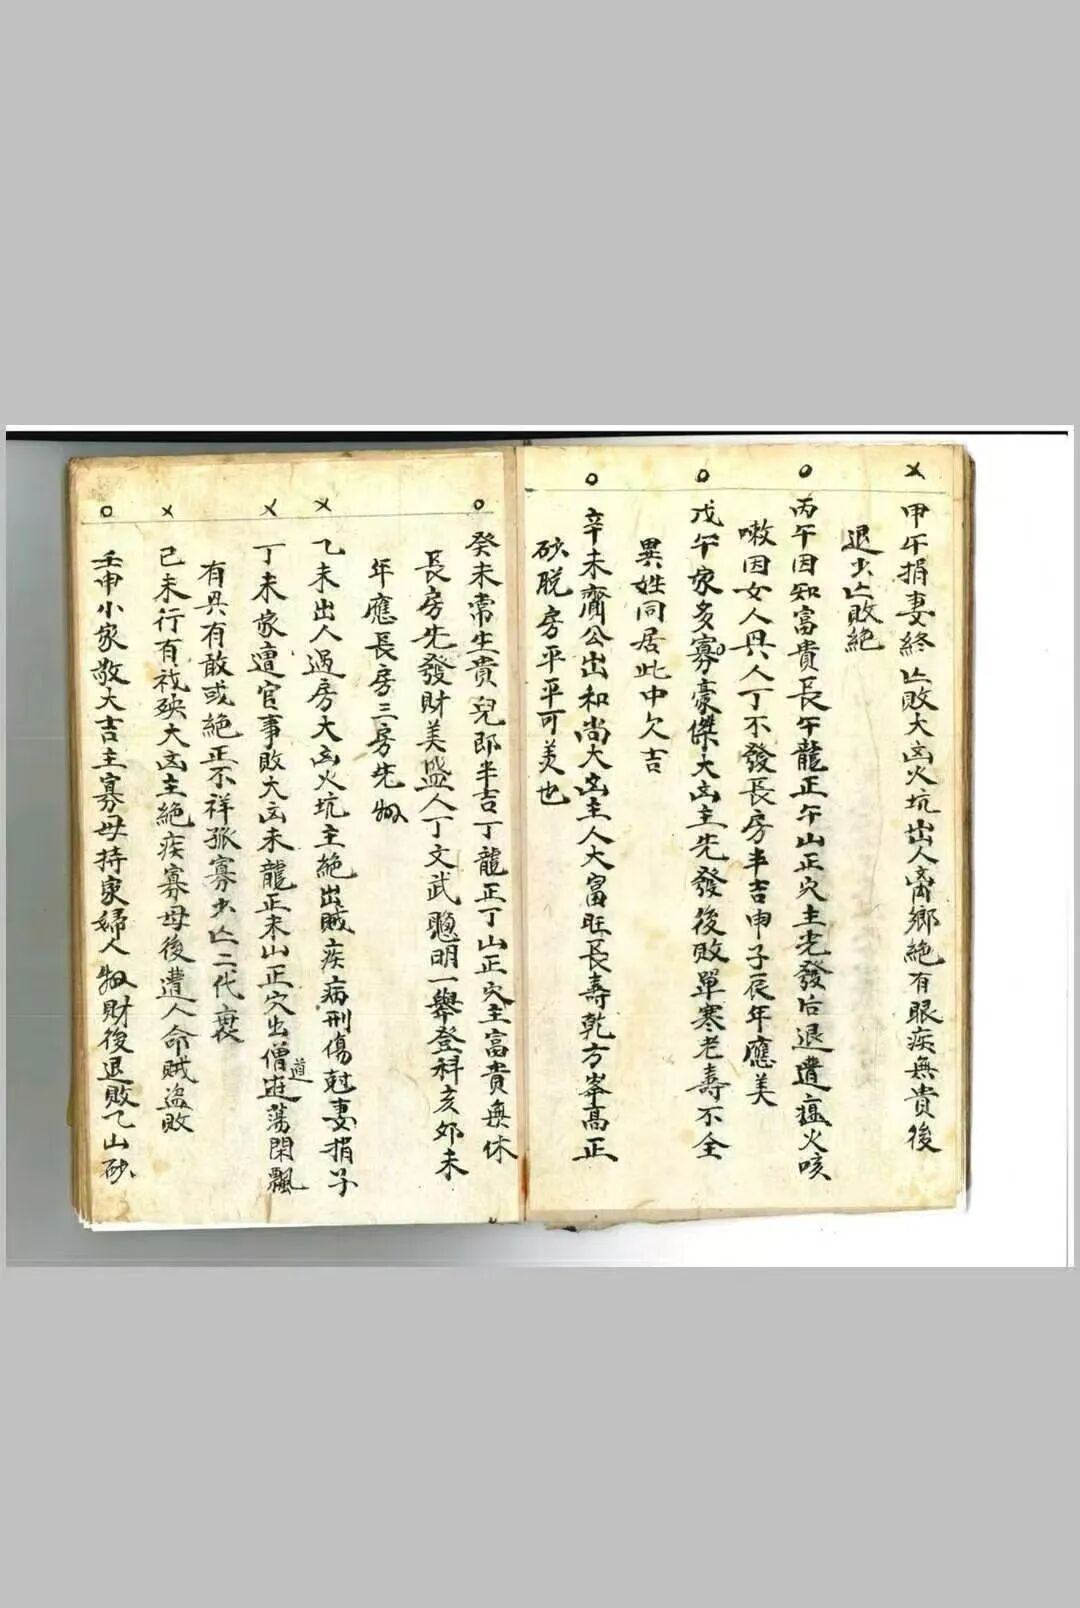 甲午損妻終亡敗大凶火坑出人离鄉絶有眼疾無貴後
退少亡敗絶
丙午因知富貴長午龍正午山正穴主先發后退遭瘟火咳
嗽因女人興人丁不發長房半吉申子辰年應美
戊午家多寡豪傑大凶主先發後敗單寒老壽不全
異姓同居此中欠吉
辛未齋公出和尚大凶主人大富旺長壽乾方峯高正
砂脱房平平可美也
癸未常生貴兒郎半吉丁龍正丁山正穴主富貴無休
長房先發財美盛人丁文武聰明一舉登科亥卯未
年應長房三房先
乙未出人過房大凶火坑主絶出賊疾病刑傷尅妻損子
丁未家遭官事敗大凶未龍正未山正穴出僧道遊蕩閑飄
有興有敢或絶正不祥孤寡少亡二代衰
己未行有祸殃大凶主絶疾寡母後遭人命賊盗敗
壬申小家敬大吉主寡母持家婦人財後退敗乙山砂